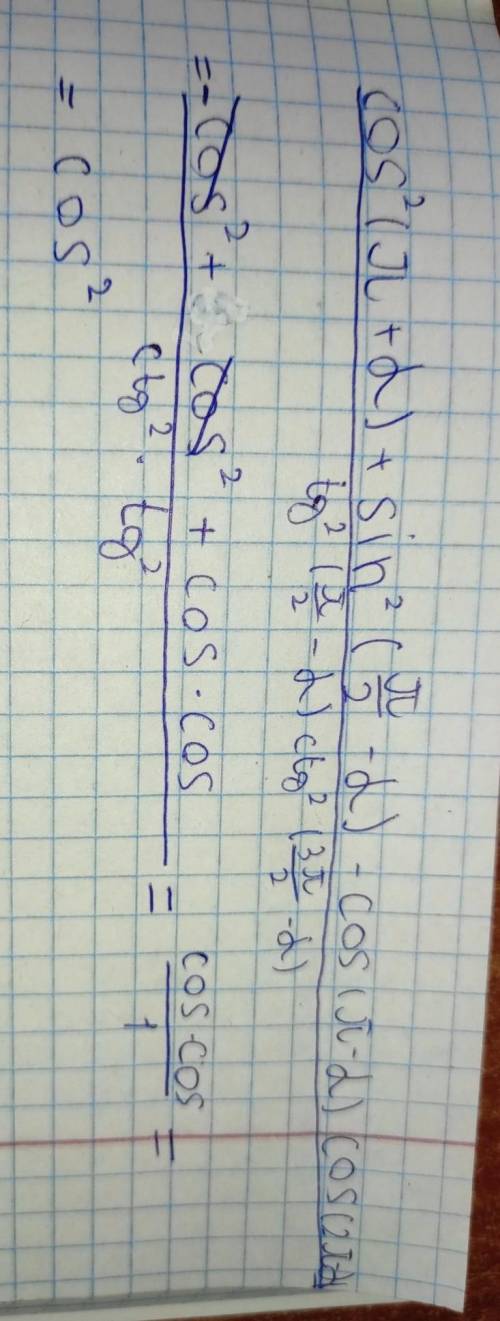 cos²(π + α) + sin²(π/2 - α) - cos(π - α) cos(2π-α)
tg²(π/2 - α) ctg²(3π/2 - α)
= - cos² + cos² + cos · cos = cos·cos =
ctg² · tg² 1
= cos²